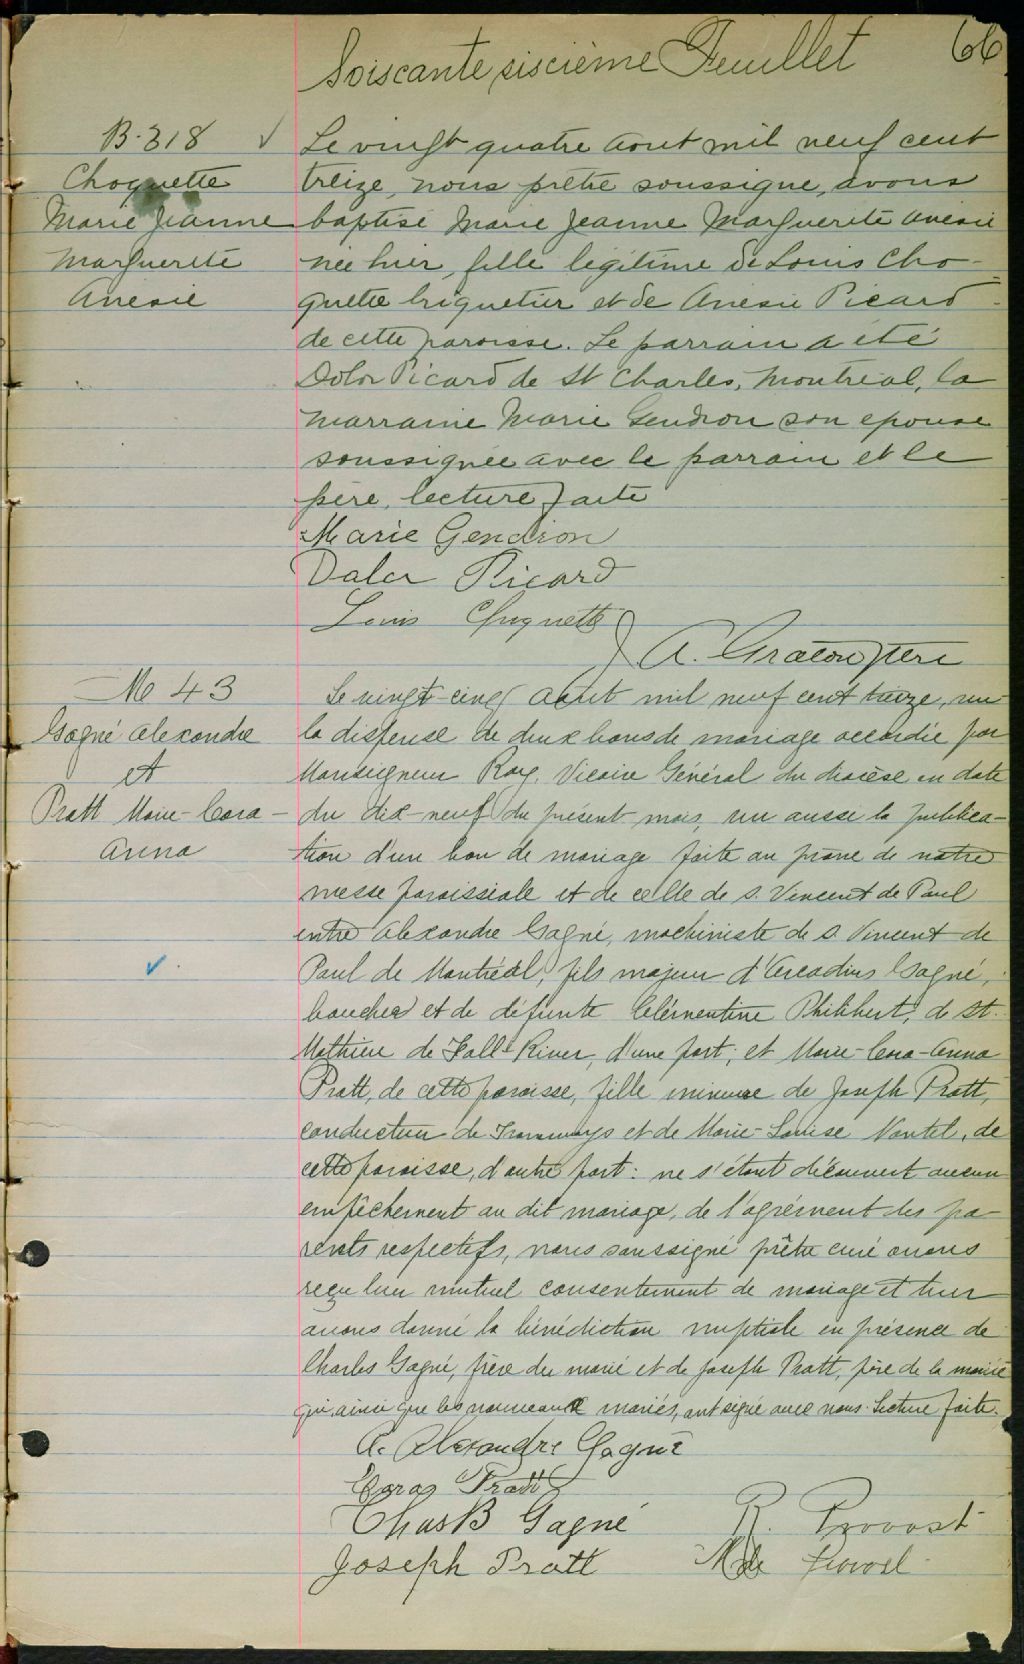 Soiscante, siscième Feuillet 66
B. 318 ✓
Choquette
Marie Jeanne
Marguerite
Anesie
Le vingt quatre aout mil neuf cent
treize, nous prêtre soussigne, avons
baptisé Marie Jeanne Marguerite Anesie
née hier, fille legitime de Louis Cho-
quette briquetier et de Anesie Picard
de cette paroisse. Le parrain a été
Dolor Picard de St Charles, Montreal, la
marraine Marie Gendron son epouse
soussignée avec le parrain et le
père, lecture faite
Marie Gendron
Dalor Picard
Louis Choquette
A. Graton ptre
M 43
Gagné Alexandre
et
Pratt Marie-Cora-
Anna
Le vingt-cinq Aout mil neuf cent treize, vu
la dispense de deux bans de mariage accordée par
Monseigneur Roy, Vicaire Général du diocèse en date
du dix-neuf du présent mois, vu aussi la publica-
tion d'un ban de mariage faite au prône de notre
messe paroissiale et de celle de S. Vincent de Paul
entre Alexandre Gagné, machiniste de S. Vincent de
Paul de Montréal, fils majeur d'Arcadius Gagné,
boucher et de défunte Clémentine Philibert, de St.
Mathieu de Fall-River, d'une part; et Marie-Cora-Anna
Pratt, de cette paroisse, fille mineure de Joseph Pratt,
conducteur de Tramways et de Marie-Louise Nantel, de
cette paroisse, d'autre part: ne s'étant découvert aucun
empêchement au dit mariage, de l'agrément des pa-
rents respectifs, nous soussigné prêtre curé avons
reçu leur mutuel consentement de mariage et leur
avons donné la bénédiction nuptiale en présence de
Charles Gagné, frère du marié et de Joseph Pratt, père de la mariée
qui, ainsi que les nouveaux mariés, ont signé avec nous. Lecture faite.
A. Alexandre Gagné
Cora Pratt
Chas B Gagné R. Provost
Joseph Pratt Mde Provost